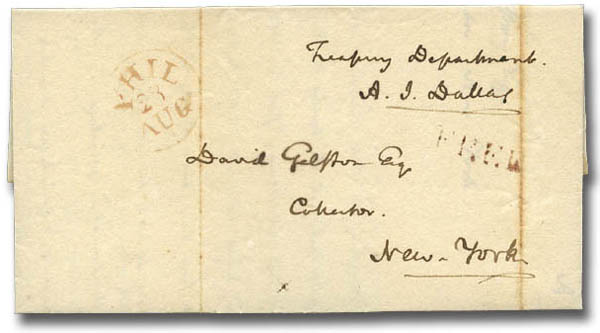 PHIL
23
AUG
Treasury Department.
A. J. Dallas
FREE
David Gelston Esq
Collector.
New-York